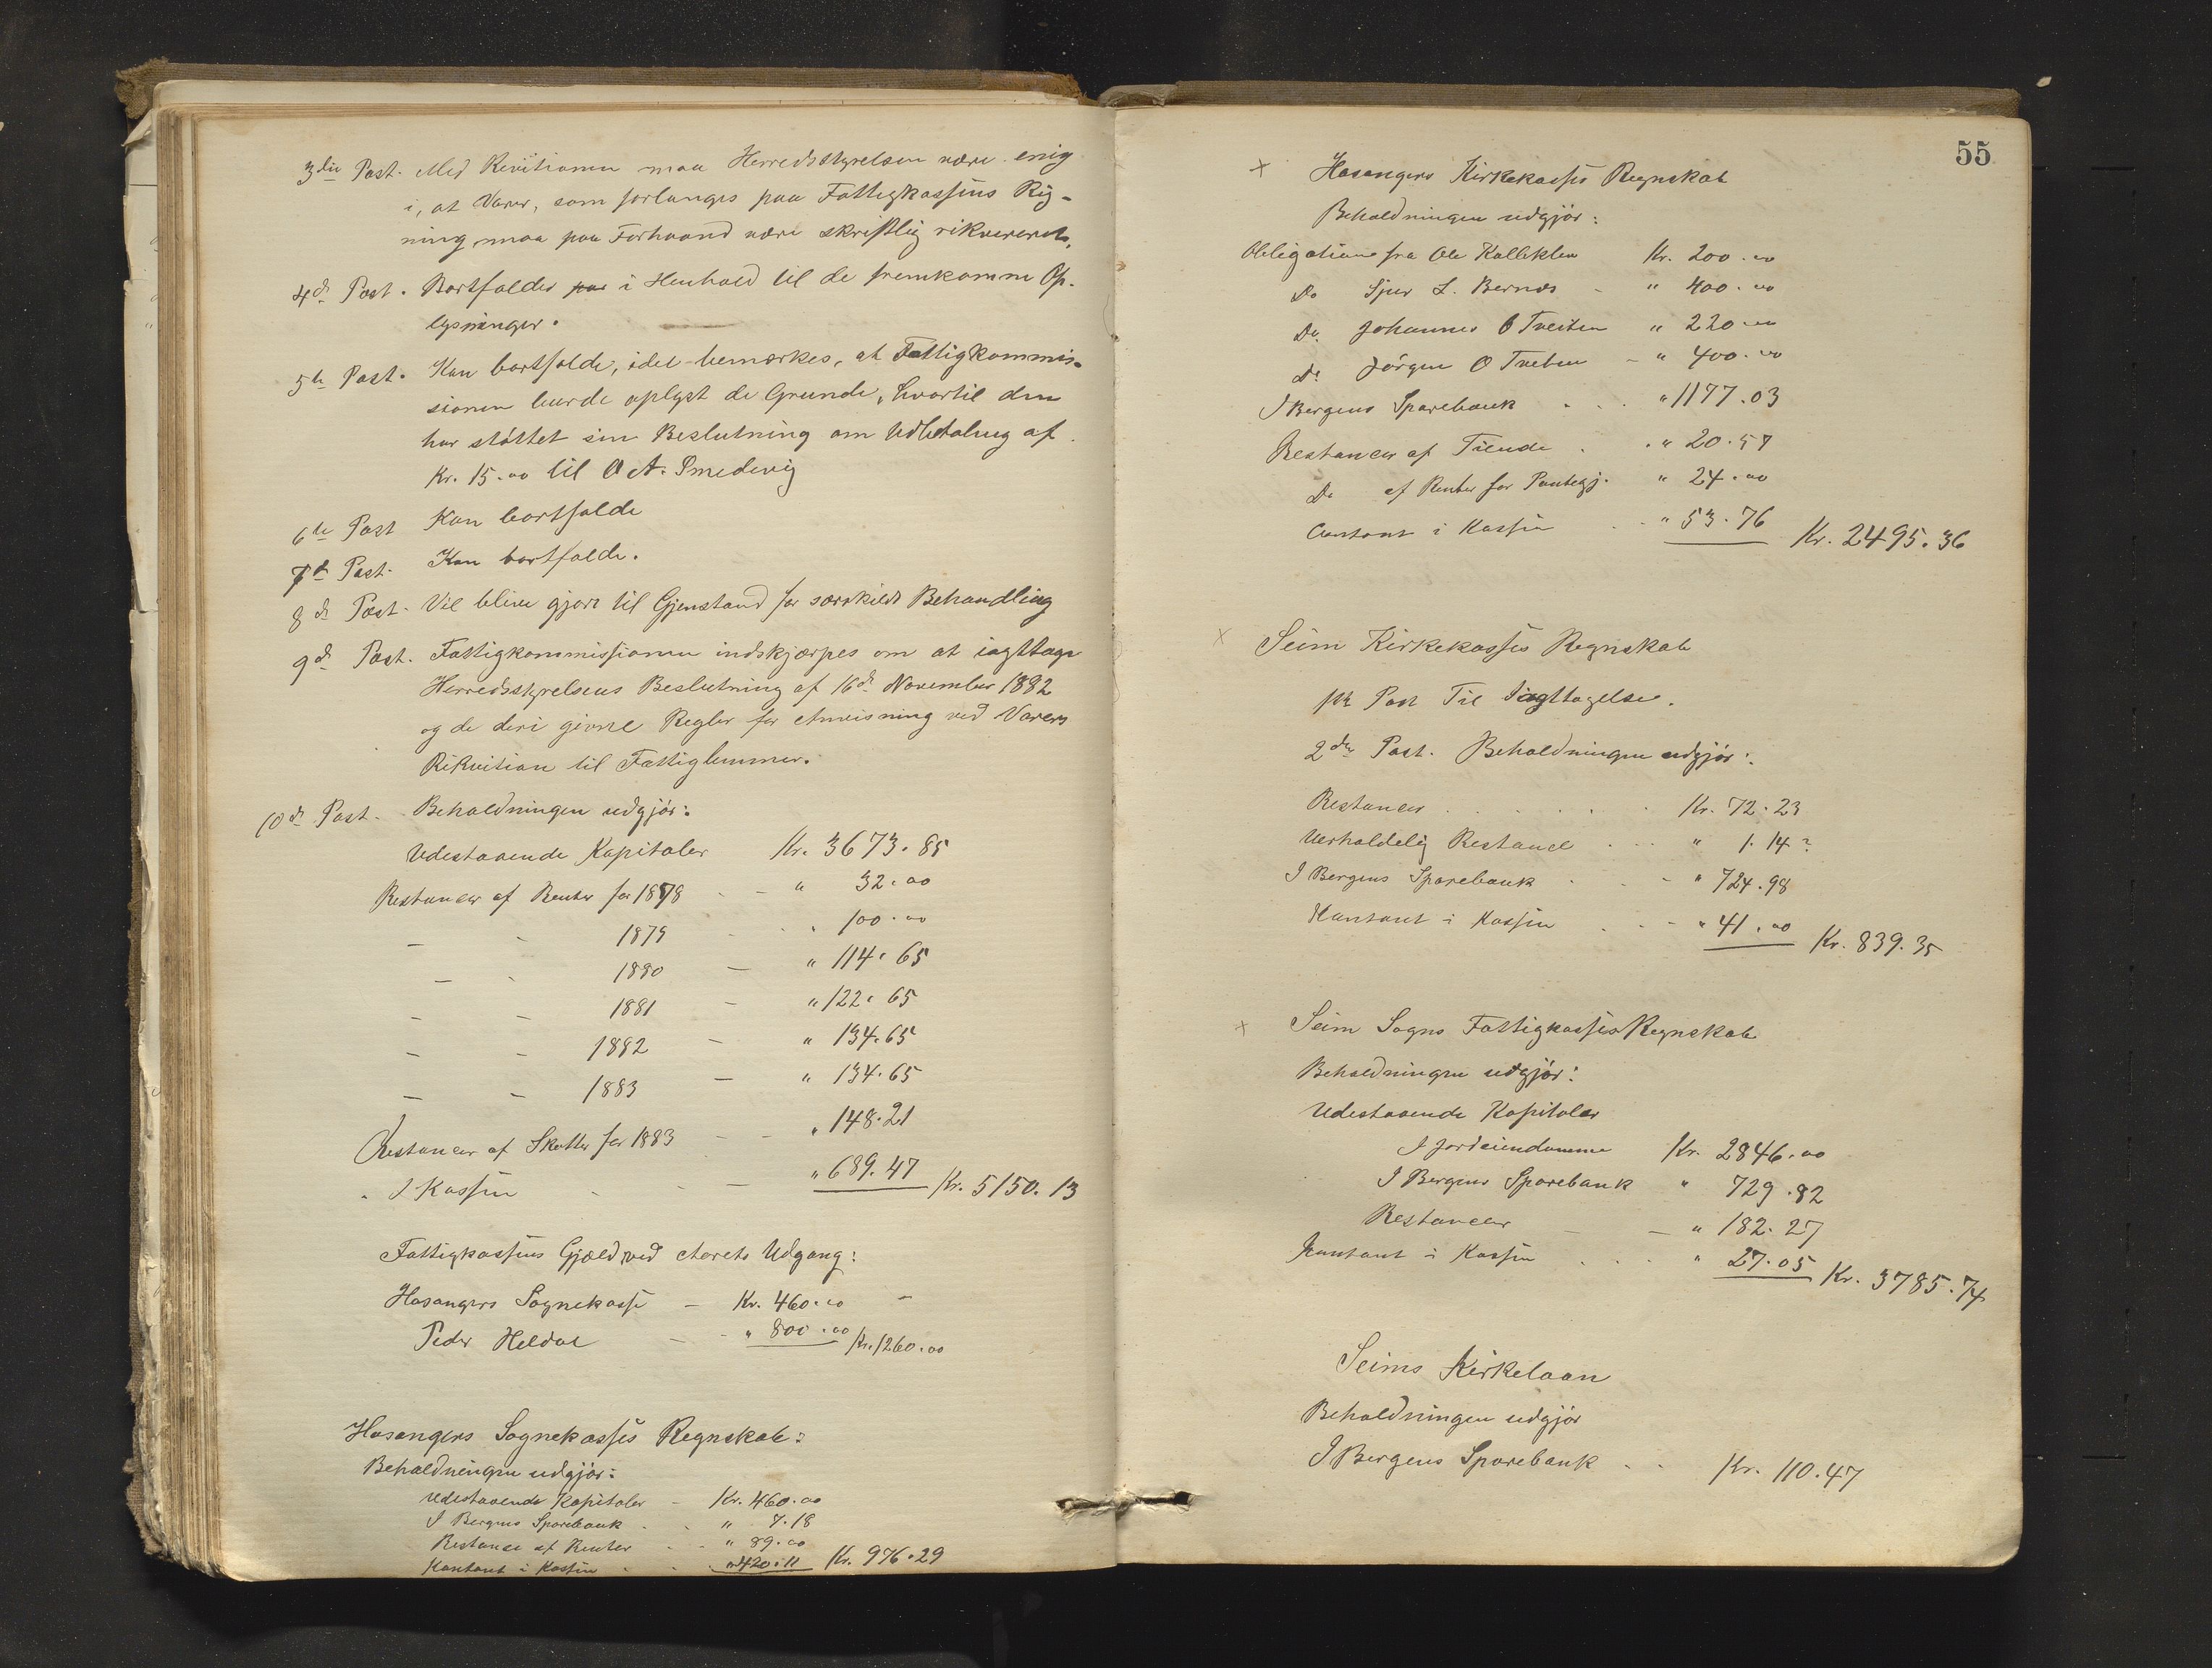 3die Post. Med Revisionen maa Herredsstyrelsen være enig
i, at Varer, som forlanges paa Fattigkassens Rig-
ning maa paa Forhaand være skriftlig rikvereret.
4de Post. Bortfalder paa i Henhold til de fremkomne Op-
lysninger.
5te Post. Kan bortfalde, idet bemærkes, at Fattigkommis-
sionen burde oplyst de Grunde, hvortil den
har støttet sin Beslutning om Udbetaling af
Kr. 15.00 til O A. Smedevig
6te Post Kan bortfalde
7de Post. Kan bortfalde.
8de Post. Vil blive gjort til Gjenstand for særskildt Behandling
9de Post. Fattigkommissionen indskjærpes om at iagttage
Herredsstyrelsens Beslutning af 16de November 1882
og de deri givne Regler for Anvisning ved Varers
Rikvition til Fattiglemmer.
10de Post. Beholdningen udgjör:
Udestaaende Kapitaler Kr. 3673.85
Restancer af Renter for 1878 - - " 32.00
- - 1879 - " 100.00
- - 1880 - " 114.65
- - 1881 - " 122.65
- - 1882 - " 134.65
- - 1883 - " 134.65
Restancer af Skatter for 1883 - - " 148.21
" I Kassen - - " 689.47 Kr. 5150.13
Fattigkassens Gjæld ved Aarets Udgang:
Hosangers Sognekasse - Kr. 460.00 -
Peder Heldal - - " 800.00 Kr. 1260.00
Hosangers Sognekasses Regnskab:
Beholdningen udgjör:
Udestaaende Kapitaler - Kr. 460.00
I Bergens Sparebank - - " 7.18
Restance af Renter - - " 89.00
Kontant i Kassen - - " 420.11 Kr. 976.29
55
x Hosangers Kirkekasses Regnskab
Beholdningen udgjör:
Obligation fra Ole Kallekleiv Kr. 200.00
Do Sjur L. Bernes - " 400.00
Do. Johannes O Tveiten " 220.00
Do Jörgen O Tveten - " 400.00
I Bergens Sparebank - . . " 1177.03
Restancer af Tiende . . " 20.57
Do af Renter for Pantegj. " 24.00
Contant i Kassen . . " 53.76 Kr. 2495.36
x Seim Kirkekasses Regnskab
1ste Post Til Iagttagelse.
2den Post. Beholdningen udgjör:
Restancer . . . . . Kr. 72.23
Uerholdelig Restance . . . " 1.14
I Bergens Sparebank . . - " 724.98
Kontant i Kassen . . - " 41.00 Kr. 839.35
x Seim Sogns Fattigkasses Regnskab
Beholdningen udgjör:
Udestaaende Kapitaler
I Jordeiendomme Kr. 2846.00
I Bergens Sparebank " 729.82
Restancer - - " 182.27
Kontant i Kassen . . . " 27.05 Kr. 3785.74
Seims Kirkelaan
Beholdningen udgjör
I Bergens Sparebank - - Kr. 110.47